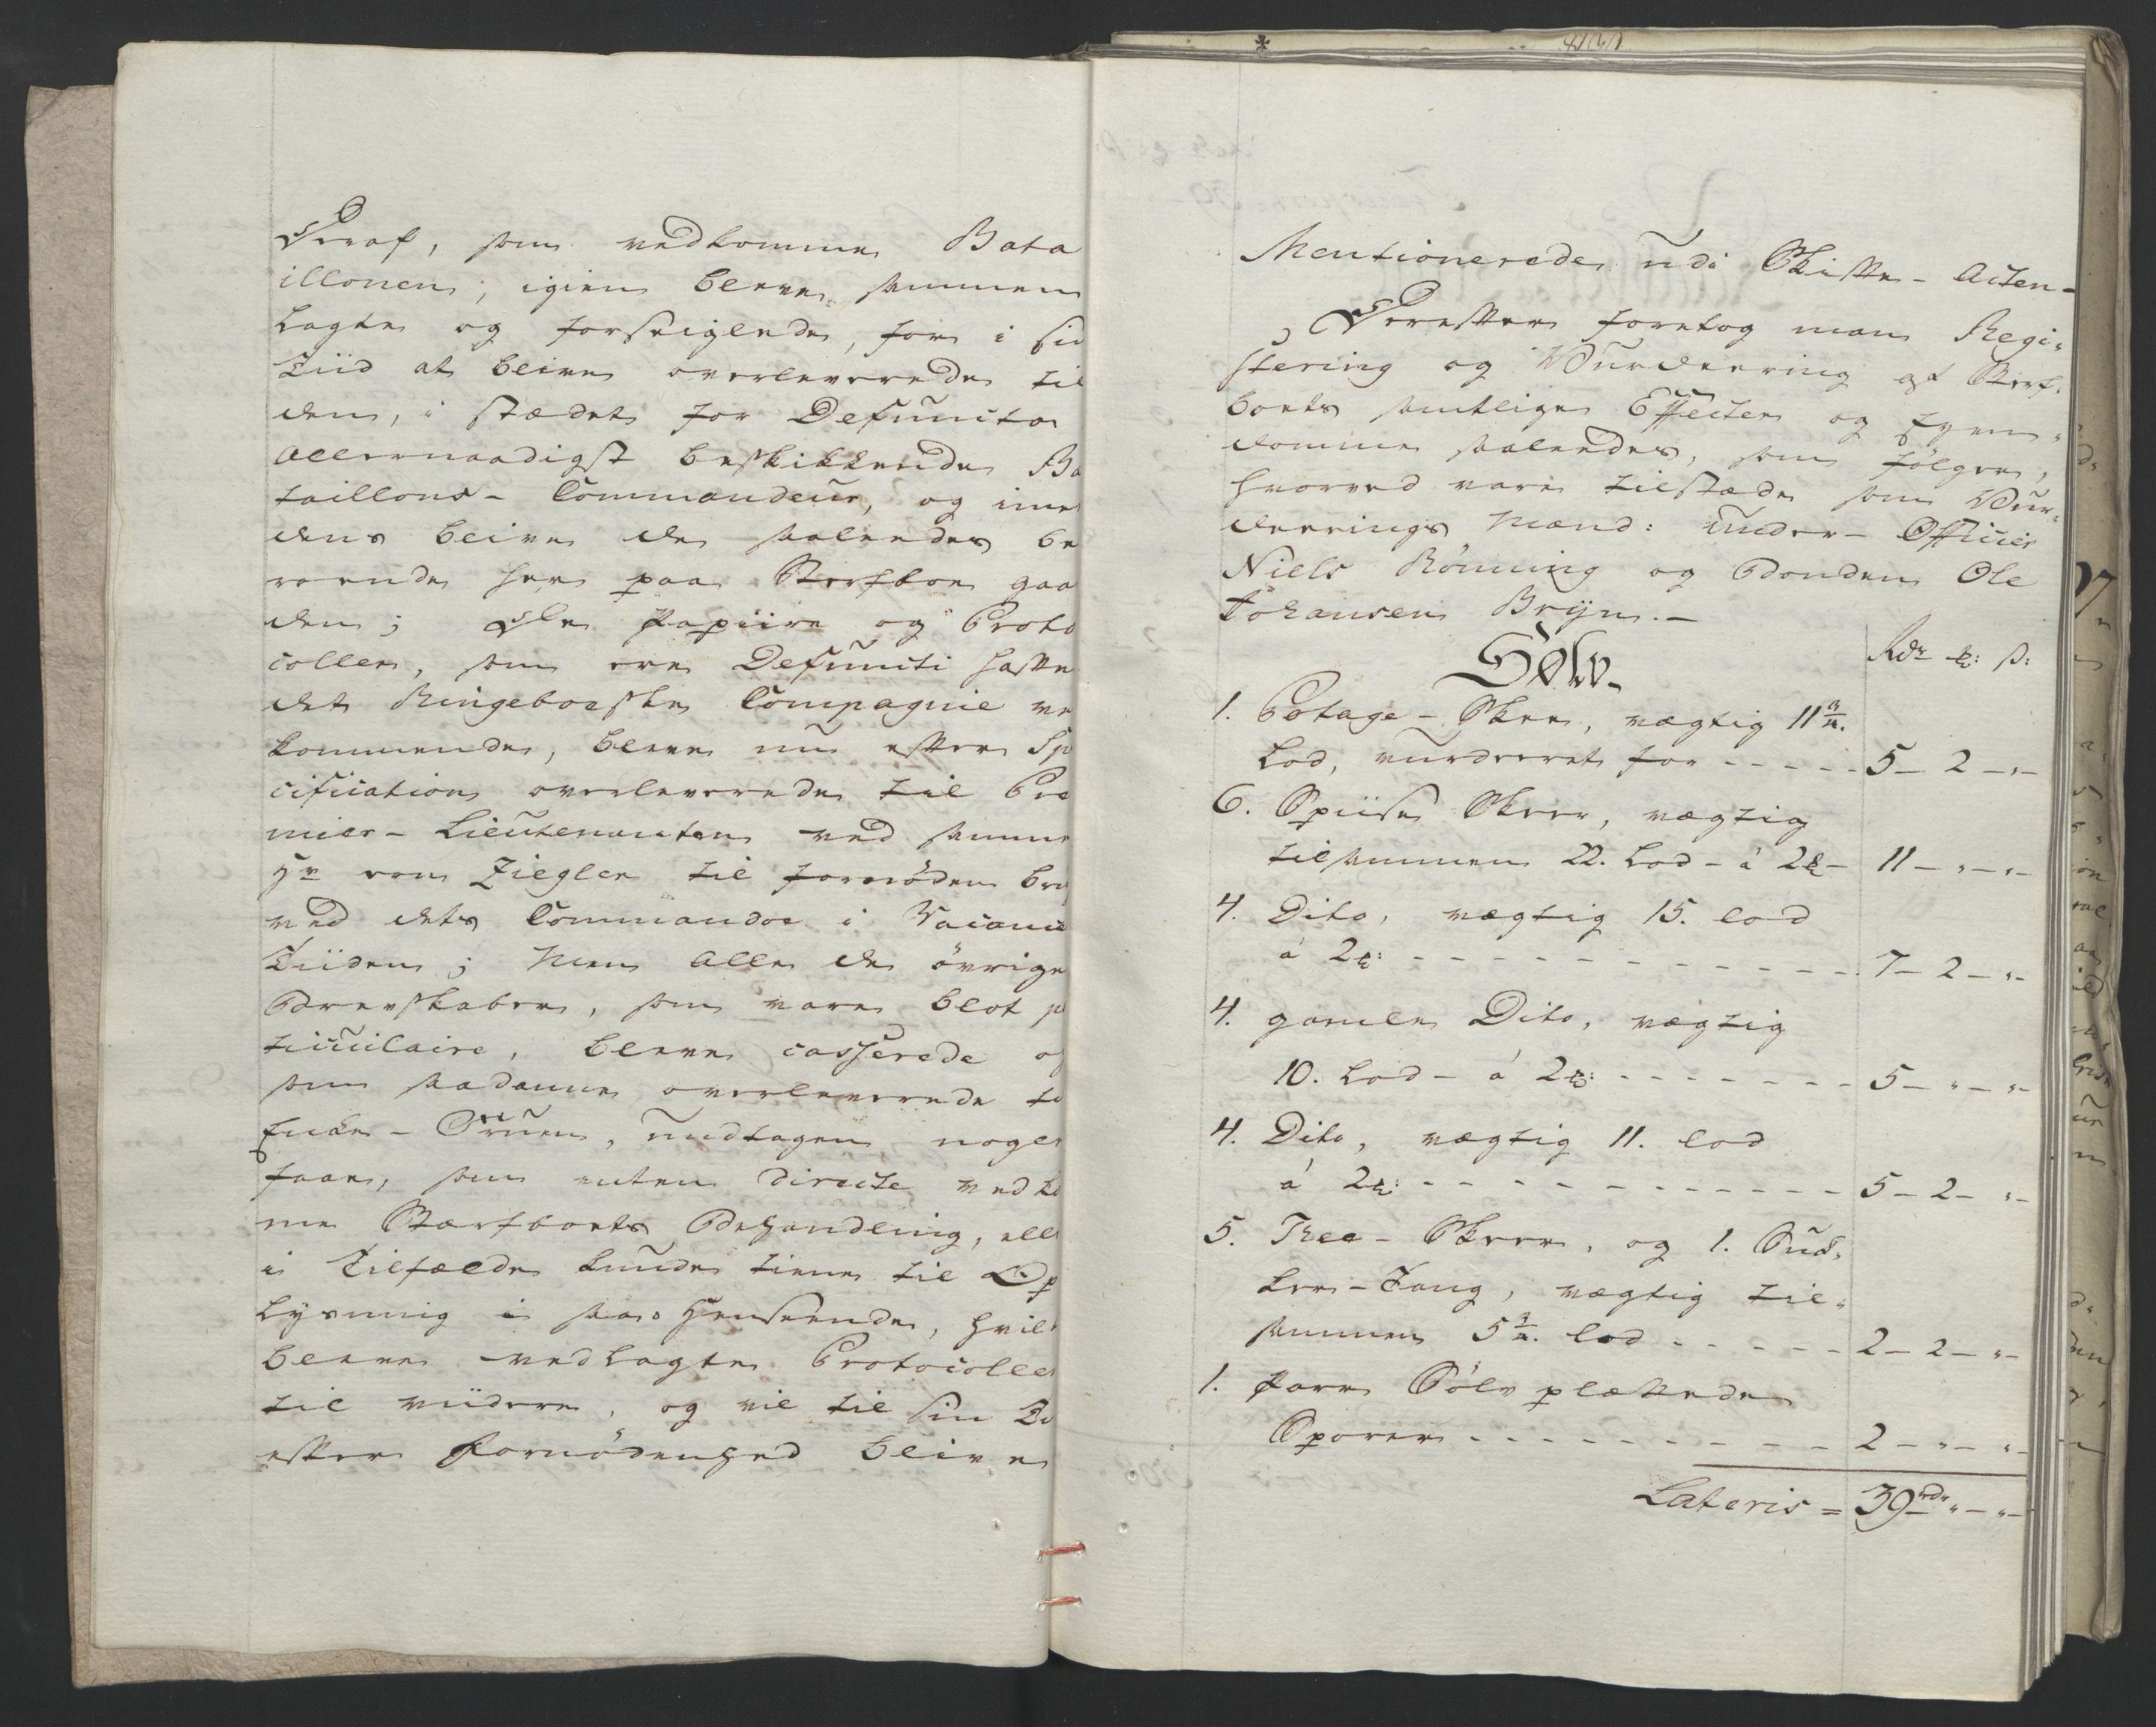 Deraf, som vedkomme Bata
illonen, igien bleve sammen
lagte og forseiglede, for i sin
Tiid at blive overleverede til
den, i stædet for Defuncto
Allernaadigst beskikkende Ba
taillons-Commandeur, og imid
dens blive de saaledes be
roende her paa Sterfboe gaa
den; De Papiire og Proto
coller, som ere Defuncti hafte
det Ringeboeske Compagnie ved
kommende, bleve nu efter Spe
cification overleverede til Pre
mier-Lieutenanten ved samme
Hr von Ziegler til fornöden brug
ved dets Commandoe i Vacance
Tiiden; Men Alle de övrige
Brevskaber, som vare blot par
ticulaire, bleve casserede og
som saadanne overleverede til
Enke-Fruen, undtagen nogle
faae, som enten directe vedkom
me Stærfboets Behandling, eller
i Tilfælde kunde tiene til Op
lysning i saa Henseende, hvilke
bleve vedlagte Protocollen
til viidere, og vil til sin Tid
efter Fornödenhed blive
Mentionerede udi Skifte-Acten-
Derefter foretog man Regi-
stering og Vurdeering af Sterf-
boets samtlige Effecter og Eyen-
domme saaledes, som fölger,
hvorved vare tilstæde som Vur-
deerings Mænd: Under-Officier
Niels Rönning og Bonden Ole
Johansen Bryn.-
Sölv
Rdr ℔: s:
1. Potage-Skee, vægtig 11 3/4.
Lod, vurderet for - - - - - 5 - 2 - "-
6. Spiise Skeer, vægtig
tilsammen 22. Lod - á 2℔ - 11 - " - "-
4. Dito, vægtig 15. lod
á 2℔: - - - - - - - - - - 7 - 2 - "-
4. gamle Dito, vægtig
10. Lod - á 2℔: - - - - - - - 5 - " - "-
4. Dito, vægtig 11. lod
á 2℔: - - - - - - - - - - - 5 - 2 - "-
5. Thee-Skeer, og 1. Suk-
ker-Tang, vægtig til-
sammen 5 3/4. lod - - - - - - 2 - 2 - "-
1. Pare Sölv plættede
Sporer - - - - - - - - - 2 - " - "-
Lateris = 39 rd " - "-